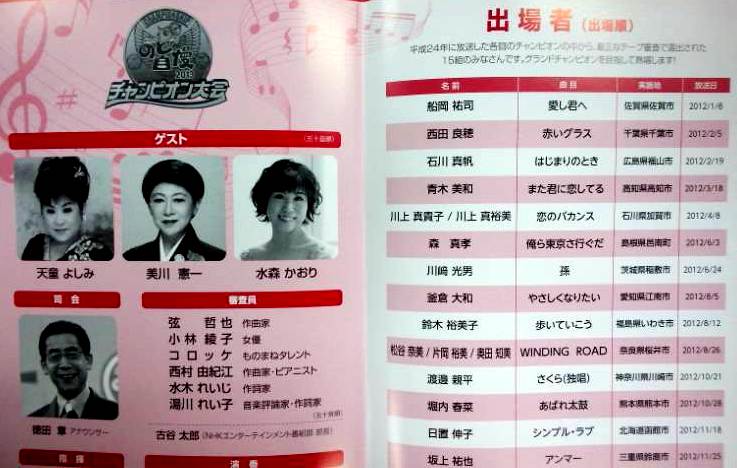 のど自慢
2013
チャンピオン大会
ゲスト
(五十音順)
天童 よしみ
美川 憲一
水森 かおり
司会
徳田 章 アナウンサー
審査員
弦 哲也 作曲家
小林 綾子 女優
コロッケ ものまねタレント
西村 由紀江 作曲家・ピアニスト
水木 れいじ 作詞家
湯川 れい子 音楽評論家・作詞家
(五十音順)
古谷 太郎 (NHKエンターテインメント番組部 部長)
指揮
演奏
出場者 (出場順)
平成24年に放送した各回のチャンピオンの中から、厳正なテープ審査で選出された
15組のみなさんです。グランドチャンピオンを目指して熱唱します!
名前 曲目 実施地 放送日
船岡 祐司 愛し君へ 佐賀県佐賀市 2012/1/8
西田 良穂 赤いグラス 千葉県千葉市 2012/2/5
石川 真帆 はじまりのとき 広島県福山市 2012/2/19
青木 美和 また君に恋してる 高知県高知市 2012/3/18
川上 真貴子 / 川上 真裕美 恋のバカンス 石川県加賀市 2012/4/8
森 真孝 俺ら東京さ行ぐだ 島根県邑南町 2012/6/3
川﨑 光男 孫 茨城県稲敷市 2012/6/24
釜倉 大和 やさしくなりたい 愛知県江南市 2012/8/5
鈴木 裕美子 歩いていこう 福島県いわき市 2012/8/12
松谷 奈美 / 片岡 裕美 / 奥田 知美 WINDING ROAD 奈良県桜井市 2012/8/26
渡邊 親平 さくら(独唱) 神奈川県川崎市 2012/10/21
堀内 春菜 あばれ太鼓 熊本県熊本市 2012/10/28
日置 伸子 シンプル・ラブ 北海道函館市 2012/11/18
坂上 祐也 アンマー 三重県鈴鹿市 2012/11/25